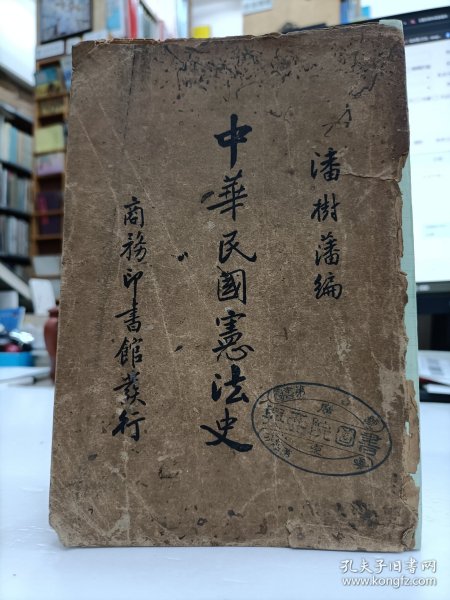 潘樹藩編
中華民國憲法史
商務印書館發行
孔夫子旧书网
www.kongfz.com